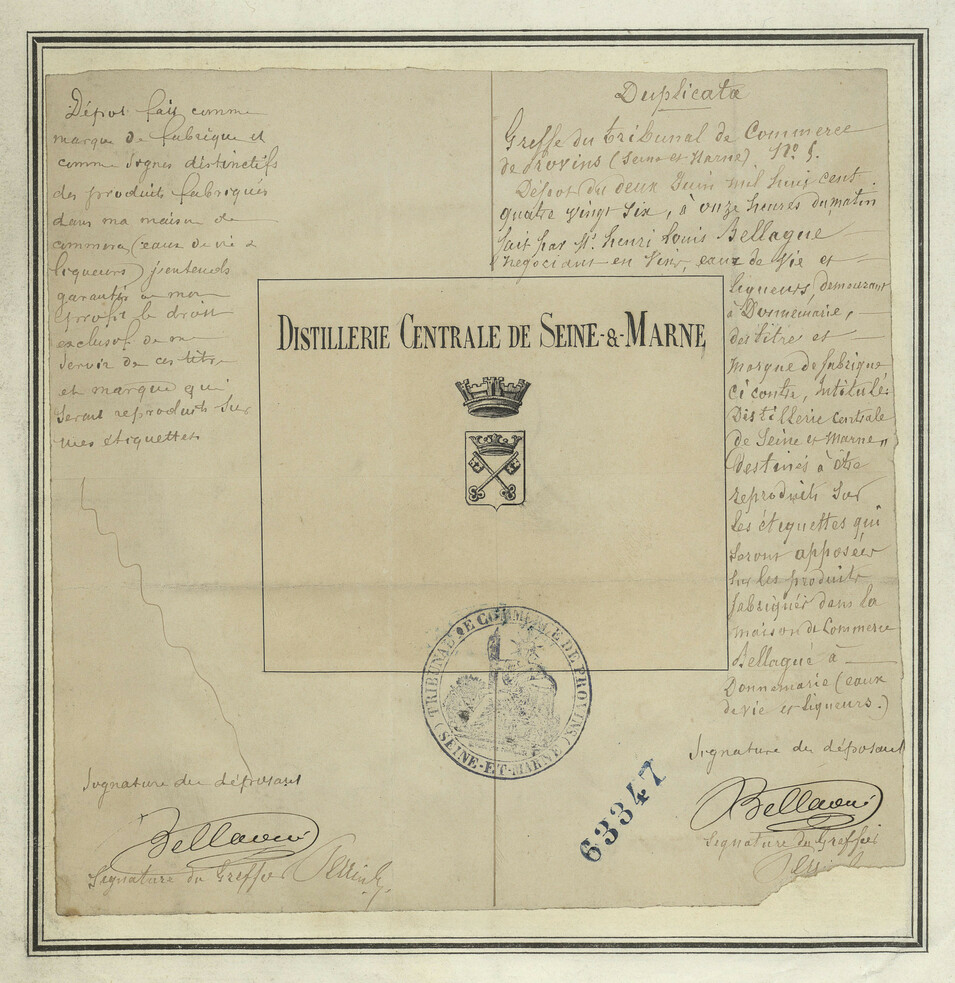 Dépot fait comme
marque de fabrique et
comme signes distinctifs
des produits fabriqués
dans ma maison de
commerce (eaux de vie &
liqueurs) j'entends
garantir à mon
profit le droit
exclusif de me
servir de ces titre
et marque qui
seront reproduits sur
mes étiquettes
Signature du déposant
Signature du Greffier
Duplicata
Greffe du tribunal de Commerce
de Provins (Seine et Marne). No 5.
Dépot du deux Juin mil huit cent
quatre vingt six, à onze heures du matin
fait par Mr. Henri Louis Bellagué
négociant en Vins, eaux de Vie et
liqueurs, demeurant
à Donnemarie,
des titre et
Marque de fabrique
ci contre, Intitulé:
Distillerie Centrale
de Seine et Marne,,
destinés à être
reproduits sur
les étiquettes qui
seront apposées
sur les produits
fabriqués dans la
maison de Commerce
Bellagué à
Donnemarie (eaux
de vie et liqueurs.)
Signature du déposant
Signature du Greffier
DISTILLERIE CENTRALE DE SEINE-&-MARNE
TRIBUNAL DE COMMERCE DE PROVINS
(SEINE-ET-MARNE)
63347